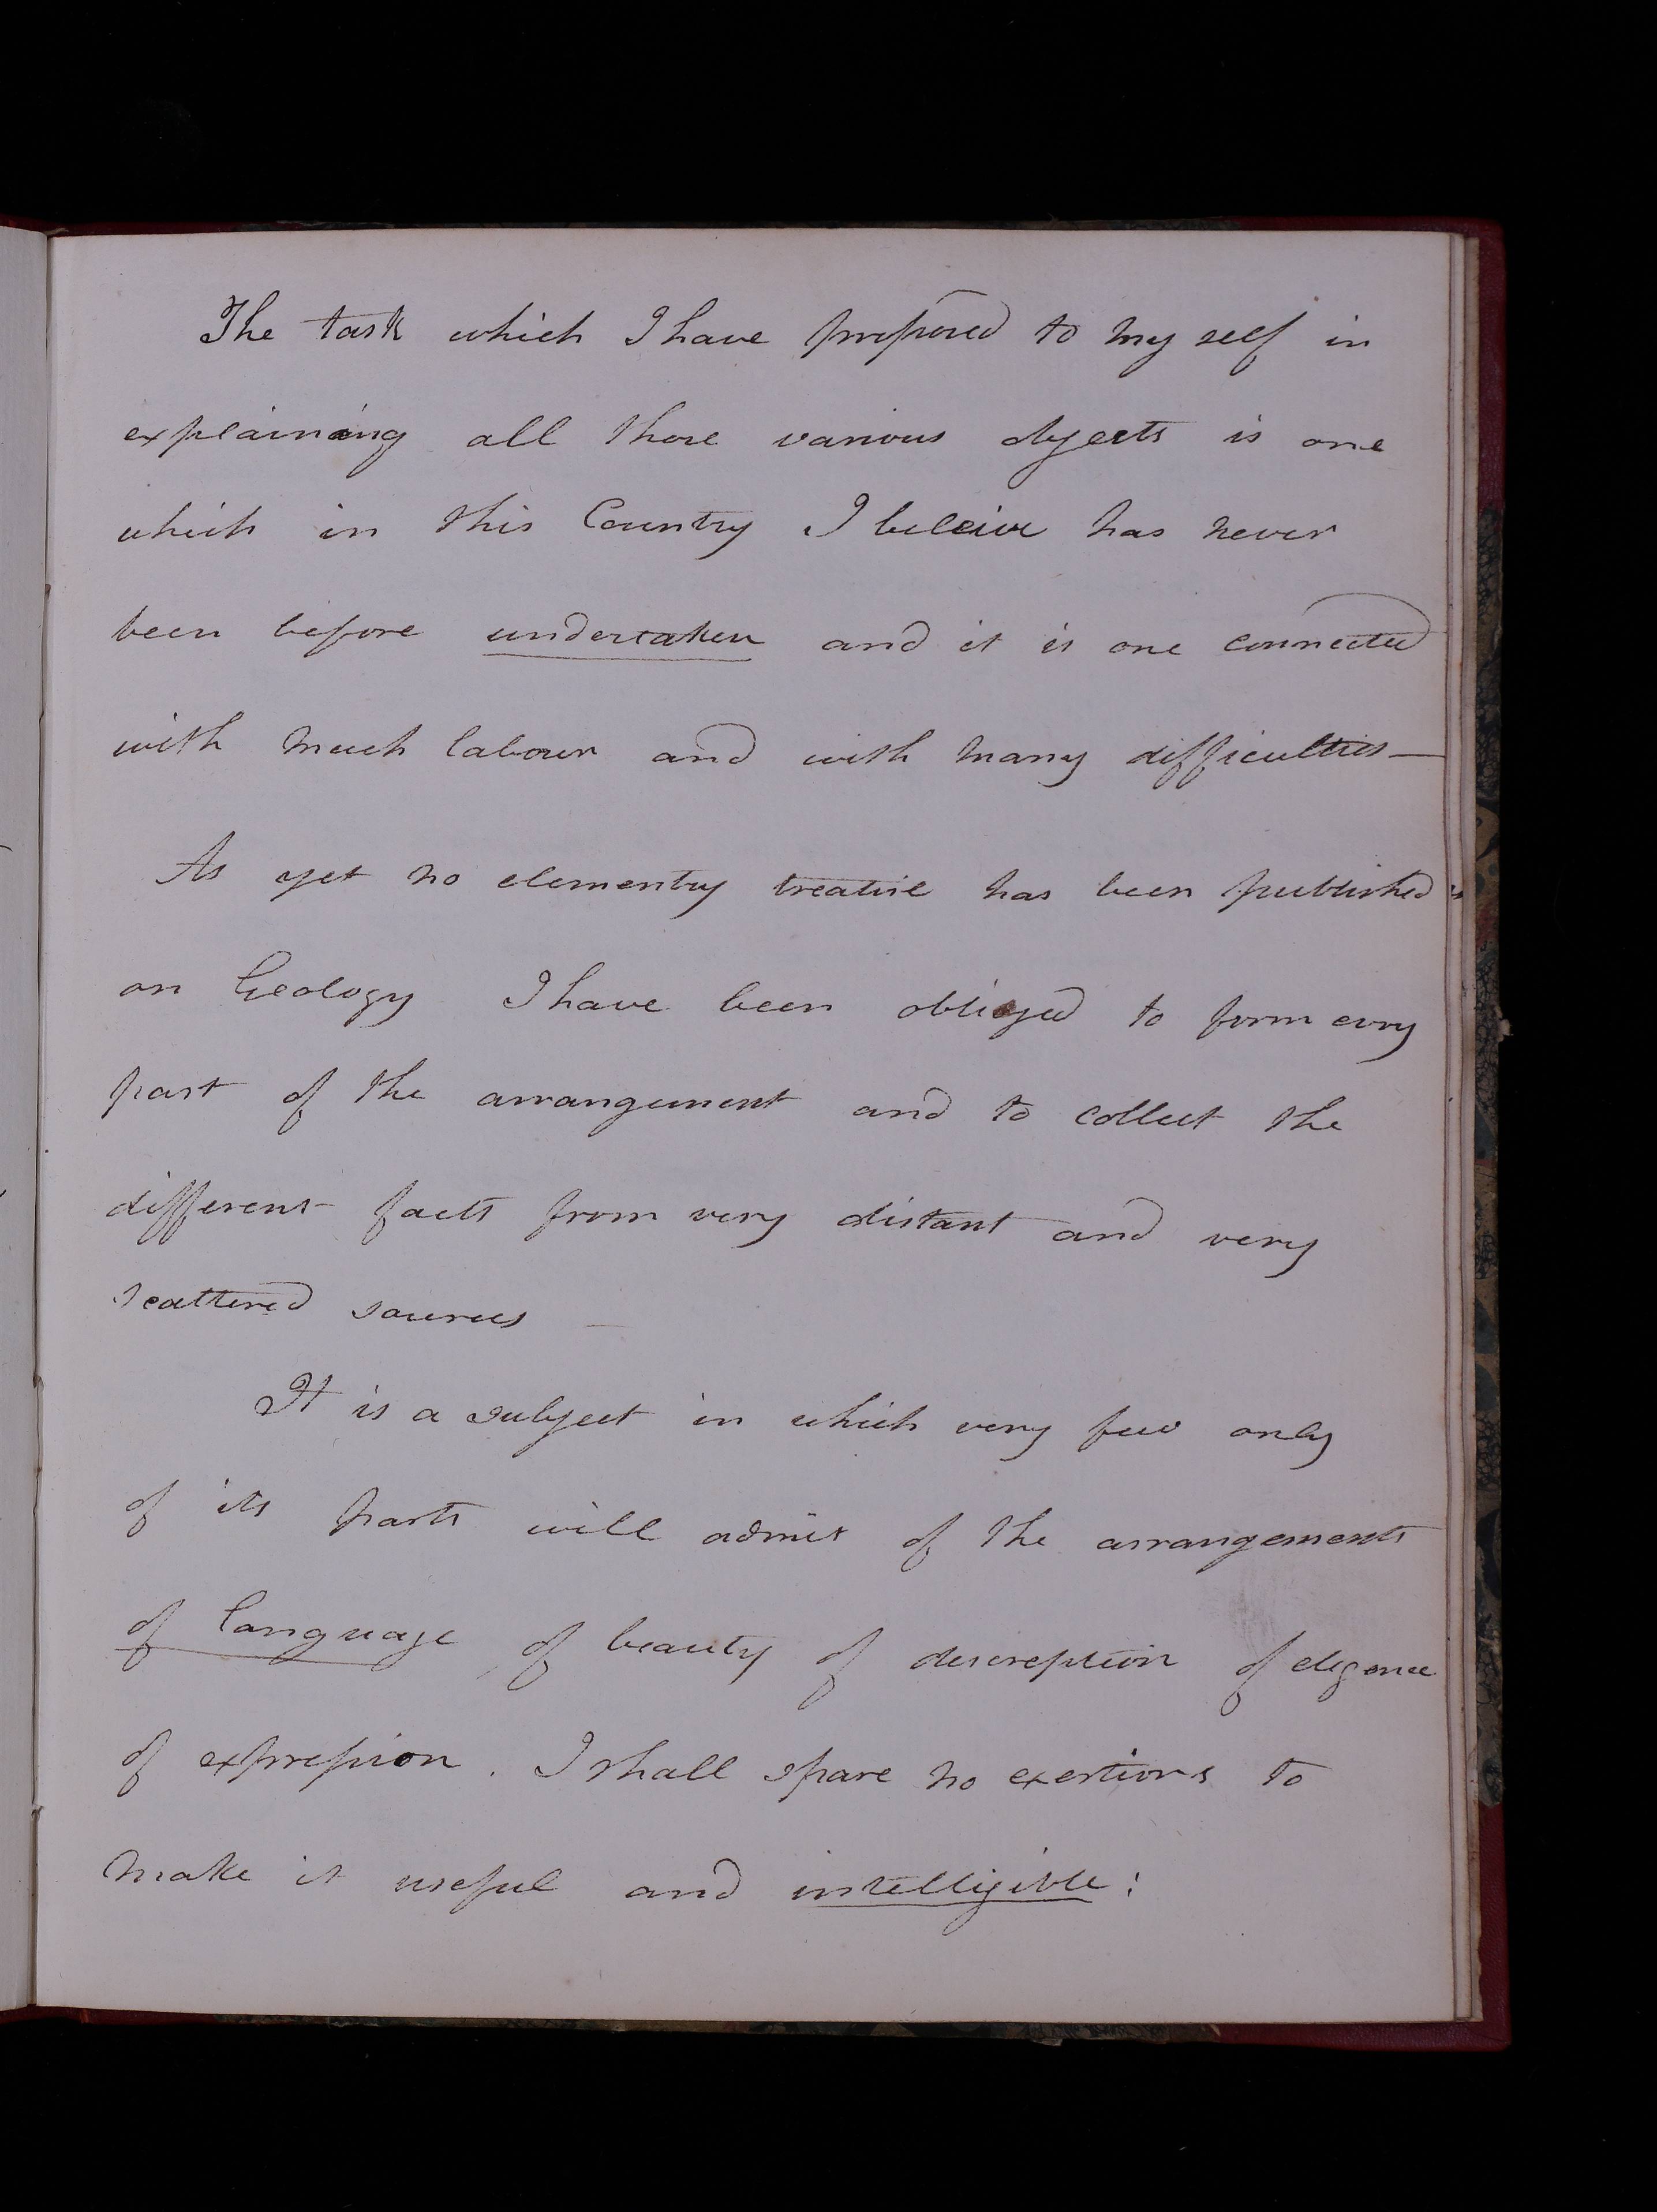 The task which I have proposed to my self in
explaining all those various objects is one
which in this Country I beleive has never
been before undertaken and it is one connected
with much labour and with many difficulties —
As yet no elementry treatise has been published
on Geology I have been obliged to form evry
part of the arrangement and to collect the
different facts from very distant and very
scattered sources —
It is a subject in which very few only
of its parts will admit of the arrangements
of language of beauty of descreption of elegance
of expression. I shall spare no exertions to
make it useful and intelligible: